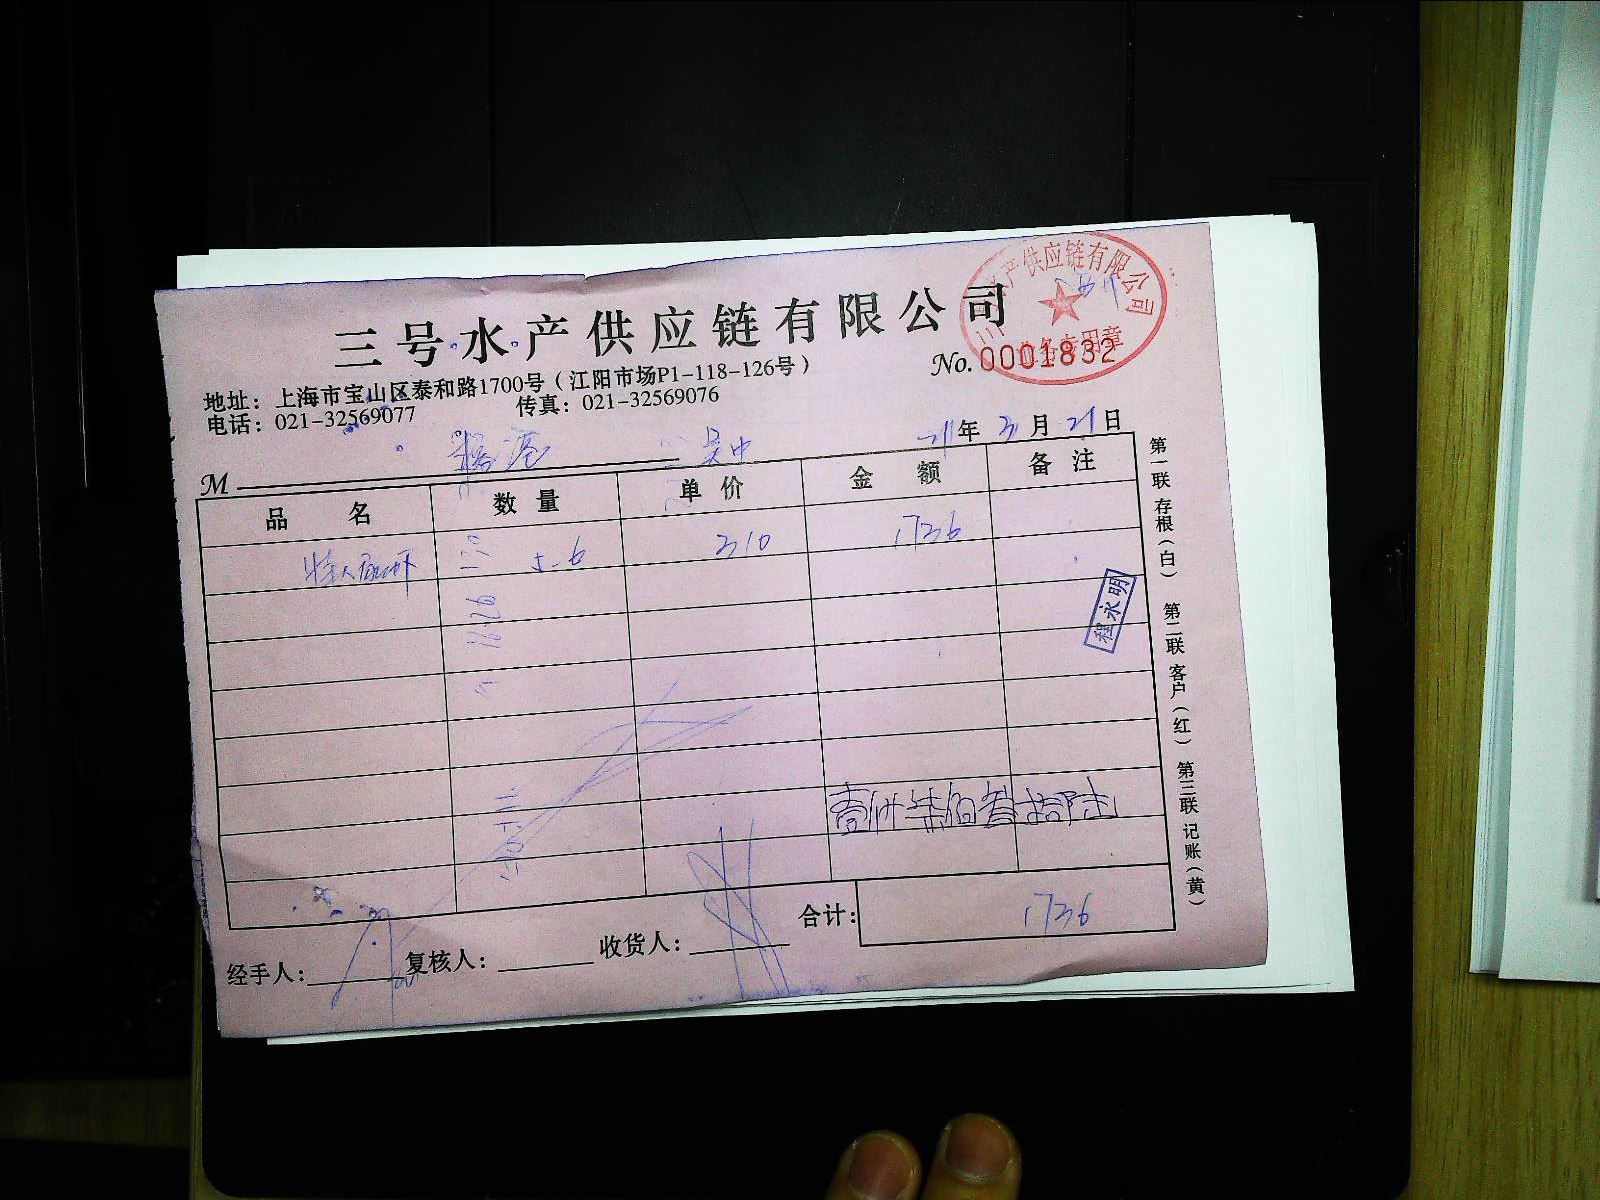 三号水产供应链有限公司
产供应链有限公司
No. 0001832
地址：上海市宝山区泰和路1700号（江阳市场P1-118-126号）
电话：021-32569077 传真：021-32569076
吴中
年 3月 21日
M
品 名 数 量 单 价 金 额 备 注
5.6 310 1736
程永明
壹仟柒佰叁拾陆
合计： 1736
经手人： 复核人： 收货人：
第一联 存根（白） 第二联 客户（红） 第三联 记账（黄）